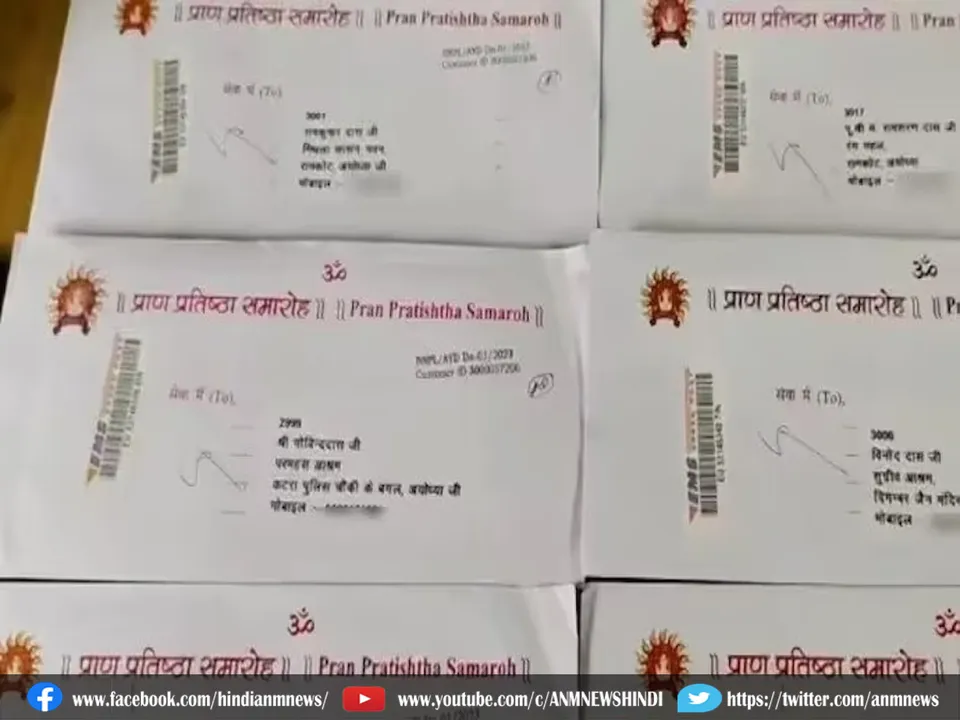 || प्राण प्रतिष्ठा समारोह || || Pran Pratishtha Samaroh ||
सेवा में (To)
3001
रामकुमार दास जी
रामकोट, अयोध्या जी
मोबाइल :-
|| प्राण प्रतिष्ठा समारोह || || Pran
सेवा में (To),
3017
रामशरण दास जी
रंग महल,
रामकोट, अयोध्या
मोबाइल :-
ॐ
|| प्राण प्रतिष्ठा समारोह || || Pran Pratishtha Samaroh ||
Customer ID 3000057206
EMS
सेवा में (To),
2999
श्री गोविन्ददास जी
परमहंस आश्रम
कटरा पुलिस चौकी के बगल, अयोध्या जी
मोबाइल :-
ॐ
|| प्राण प्रतिष्ठा समारोह ||
EMS
सेवा में (To),
3006
विनोद दास जी
सुग्रीव आश्रम,
दिगम्बर जैन मंदिर
मोबाइल
ॐ
|| प्राण प्रतिष्ठा समारोह || || Pran Pratishtha Samaroh ||
ॐ
|| प्राण प्रतिष्ठा समारोह ||
www.facebook.com/hindianmnews/ www.youtube.com/c/ANMNEWSHINDI https://twitter.com/anmnews